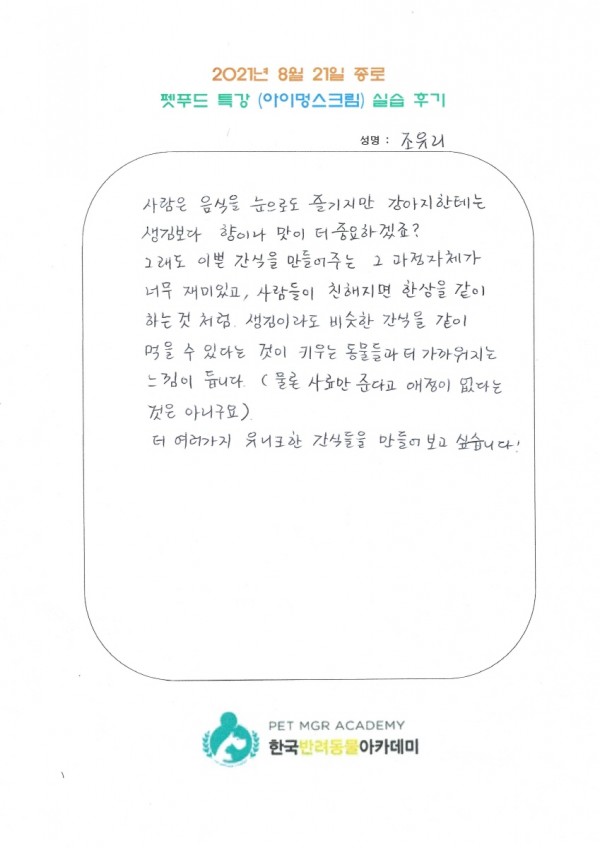 2021년 8월 21일 종로
펫푸드 특강 (아이멍스크림) 실습 후기
성명 : 조유리
사람은 음식을 눈으로도 즐기지만 강아지한테는
생김보다 향이나 맛이 더 중요하겠죠?
그래도 이쁜 간식을 만들어주는 그 과정자체가
너무 재미있고, 사람들이 친해지면 한상을 같이
하는것 처럼. 생김이라도 비슷한 간식을 같이
먹을 수 있다는 것이 키우는 동물들과 더 가까워지는
느낌이 듭니다. (물론 사료만 준다고 애정이 없다는
것은 아니구요).
더 여러가지 유니크한 간식들을 만들어보고 싶습니다!
PET MGR ACADEMY
한국반려동물아카데미